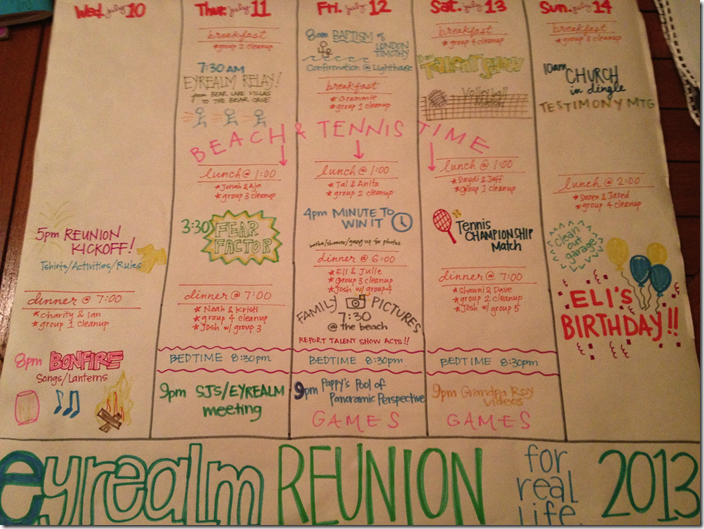 Wed. july 10
5pm REUNION
KICKOFF!
Tshirts/Activities/Rules
dinner @ 7:00
* Charity & Ian
* group 1 cleanup
8pm BONFIRE
Songs/Lanterns
Thur. july 11
breakfast
* group 2 cleanup
7:30 AM
EYREALM RELAY!
from BEAR LAKE VILLAS
TO THE BRIAR CAVE
BEACH & TENNIS TIME
lunch @ 1:00
* group 3 cleanup
3:30 FEAR
FACTOR
dinner @ 7:00
* Noah & Kristi
* group 4 cleanup
* Josh w/ group 3
BEDTIME 8:30pm
9pm SJS/EYREALM
meeting
Fri. july 12
8am BAPTISM of
LONDON
TIMOTHY
Confirmation @ Lighthouse
breakfast
* Grammie
* group 1 cleanup
lunch @ 1:00
* Tal & Anita
* group 2 cleanup
4pm MINUTE TO
WIN IT
dinner @ 6:00
* Eli & Julie
* Group 3 cleanup
* Josh w/ group 4
FAMILY PICTURES
7:30
@ the beach
REPORT TALENT SHOW ACTS!!
BEDTIME 8:30pm
9pm Poppy's Pool of
Panoramic Perspective
GAMES
Sat. july 13
breakfast
* group 4 cleanup
Talent Show
Volleyball
lunch @ 1:00
* Saydi & Jeff
* Group 1 cleanup
Tennis
CHAMPIONSHIP
Match
dinner @ 7:00
* Shawni & Dave
* group 2 cleanup
* Josh w/ group 5
BEDTIME 8:30pm
9pm Grandpa Roy
videos
GAMES
Sun. july 14
breakfast
* group 3 cleanup
10am CHURCH
in dingle
TESTIMONY MTG
lunch @ 2:00
* Saren & Jared
* group 4 cleanup
Clean
out
garage
ELI'S
BIRTHDAY!!
eyrealm REUNION for
real
life
2013